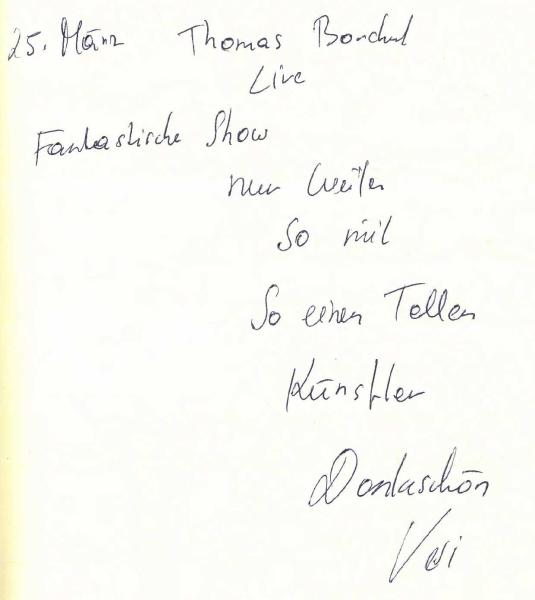 25. März Thomas Borchert
Live
Fantastische Show
nur weiter
so mit
So einen Tollen
Künstler
Dankaschön
Vesi